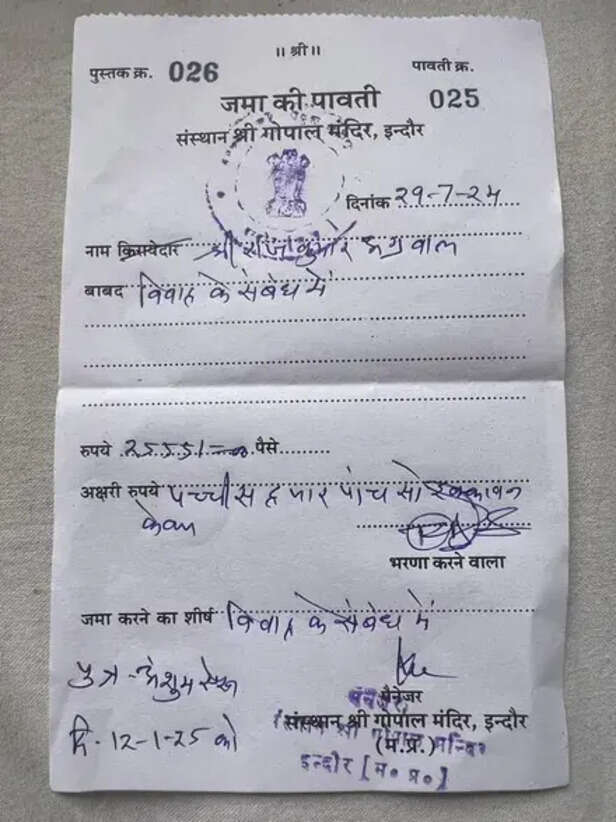 ॥ श्री ॥
पुस्तक क्र. 026 पावती क्र. 025
जमा की पावती
संस्थान श्री गोपाल मंदिर, इन्दौर
दिनांक 29-7-24
नाम किरायेदार श्री राजकुमार अग्रवाल
बाबद विवाह के संबंध में
रुपये 25551=00 पैसे
अक्षरी रुपये पच्चीस हजार पांच सो इक्कावन
केवल
भरणा करने वाला
जमा करने का शीर्ष विवाह के संबंध में
पुत्र -
दि- 12-1-25 को
मैनेजर
संस्थान श्री गोपाल मंदिर, इन्दौर
(म.प्र.)
इन्दौर [म॰ प्र॰]